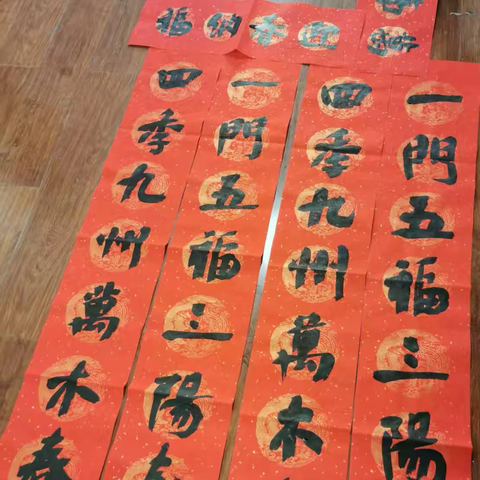 迎春納福
一門五福三陽
四季九州萬木
一門五福三陽
四季九州萬木春